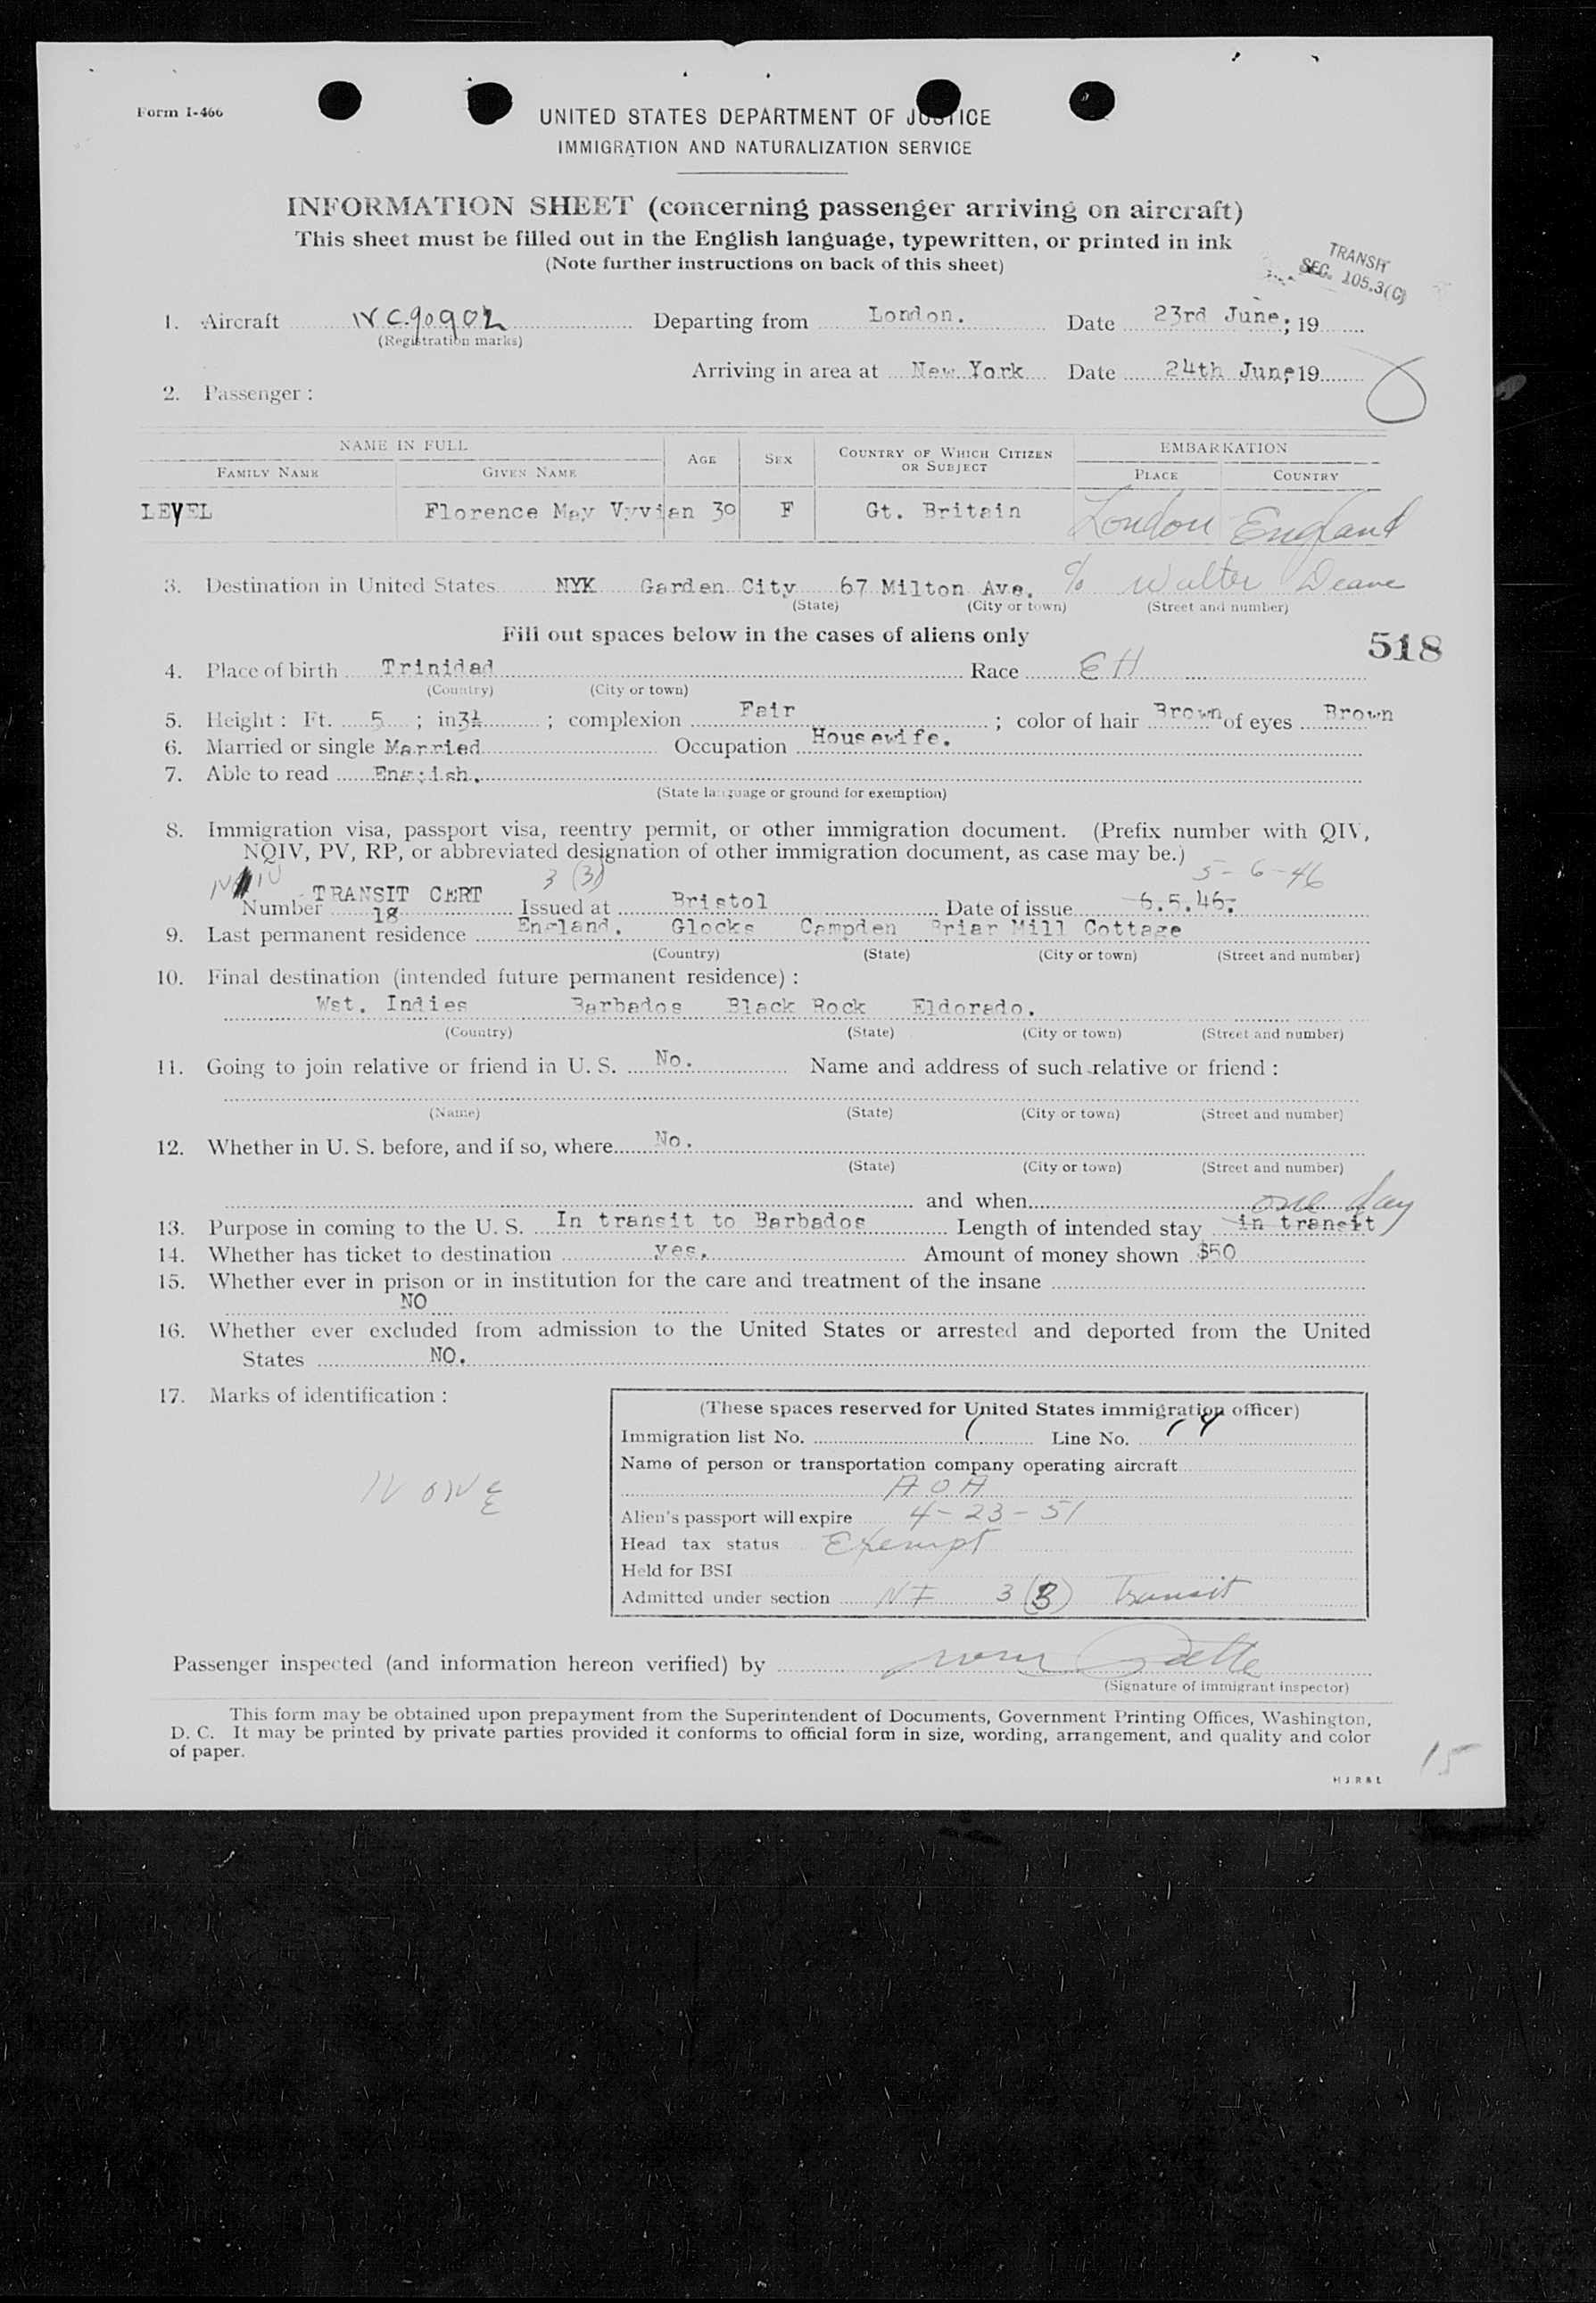 Form I-466
UNITED STATES DEPARTMENT OF JUSTICE
IMMIGRATION AND NATURALIZATION SERVICE
INFORMATION SHEET (concerning passenger arriving on aircraft)
This sheet must be filled out in the English language, typewritten, or printed in ink
(Note further instructions on back of this sheet)
TRANSIT
SEC. 105.3(C)
1. Aircraft NC90902 Departing from London. Date 23rd June; 19
(Registration marks)
Arriving in area at New York Date 24th June, 19
2. Passenger:
NAME IN FULL AGE SEX COUNTRY OF WHICH CITIZEN OR SUBJECT EMBARKATION
FAMILY NAME GIVEN NAME PLACE COUNTRY
LEVEL Florence May Vyvien 30 F Gt. Britain London England
3. Destination in United States NYK Garden City 67 Milton Ave. % Walter Deane
(State) (City or town) (Street and number)
Fill out spaces below in the cases of aliens only
518
4. Place of birth Trinidad Race EH
(Country) (City or town)
5. Height: Ft. 5; in 3½; complexion Fair; color of hair Brown of eyes Brown
6. Married or single Married Occupation Housewife.
7. Able to read English.
(State language or ground for exemption)
8. Immigration visa, passport visa, reentry permit, or other immigration document. (Prefix number with QIV,
NQIV, PV, RP, or abbreviated designation of other immigration document, as case may be.)
3 (3) 5-6-46
TRANSIT CERT
Number 18 Issued at Bristol Date of issue 6.5.46.
9. Last permanent residence England. Glocks Campden Briar Mill Cottage
(Country) (State) (City or town) (Street and number)
10. Final destination (intended future permanent residence):
Wst. Indies Barbados Black Rock Eldorado.
(Country) (State) (City or town) (Street and number)
11. Going to join relative or friend in U. S. No. Name and address of such relative or friend:
(Name) (State) (City or town) (Street and number)
12. Whether in U. S. before, and if so, where No.
(State) (City or town) (Street and number)
and when
one day
13. Purpose in coming to the U. S. In transit to Barbados Length of intended stay in transit
14. Whether has ticket to destination yes. Amount of money shown $50
15. Whether ever in prison or in institution for the care and treatment of the insane
NO
16. Whether ever excluded from admission to the United States or arrested and deported from the United
States NO.
17. Marks of identification:
NONE
(These spaces reserved for United States immigration officer)
Immigration list No. 1 Line No. 14
Name of person or transportation company operating aircraft
AOA
Alien's passport will expire 4-23-51
Head tax status Exempt
Held for BSI
Admitted under section NI 3(3) Transit
Passenger inspected (and information hereon verified) by
(Signature of immigrant inspector)
This form may be obtained upon prepayment from the Superintendent of Documents, Government Printing Offices, Washington,
D. C. It may be printed by private parties provided it conforms to official form in size, wording, arrangement, and quality and color
of paper.
15
H J R & L